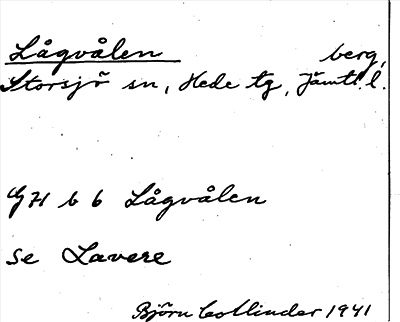 Lågvålen berg,
Storsjö sn, Hede tg, Jämtl. l.
GH b 6 Lågvålen
se Lavere
Björn Collinder 1941